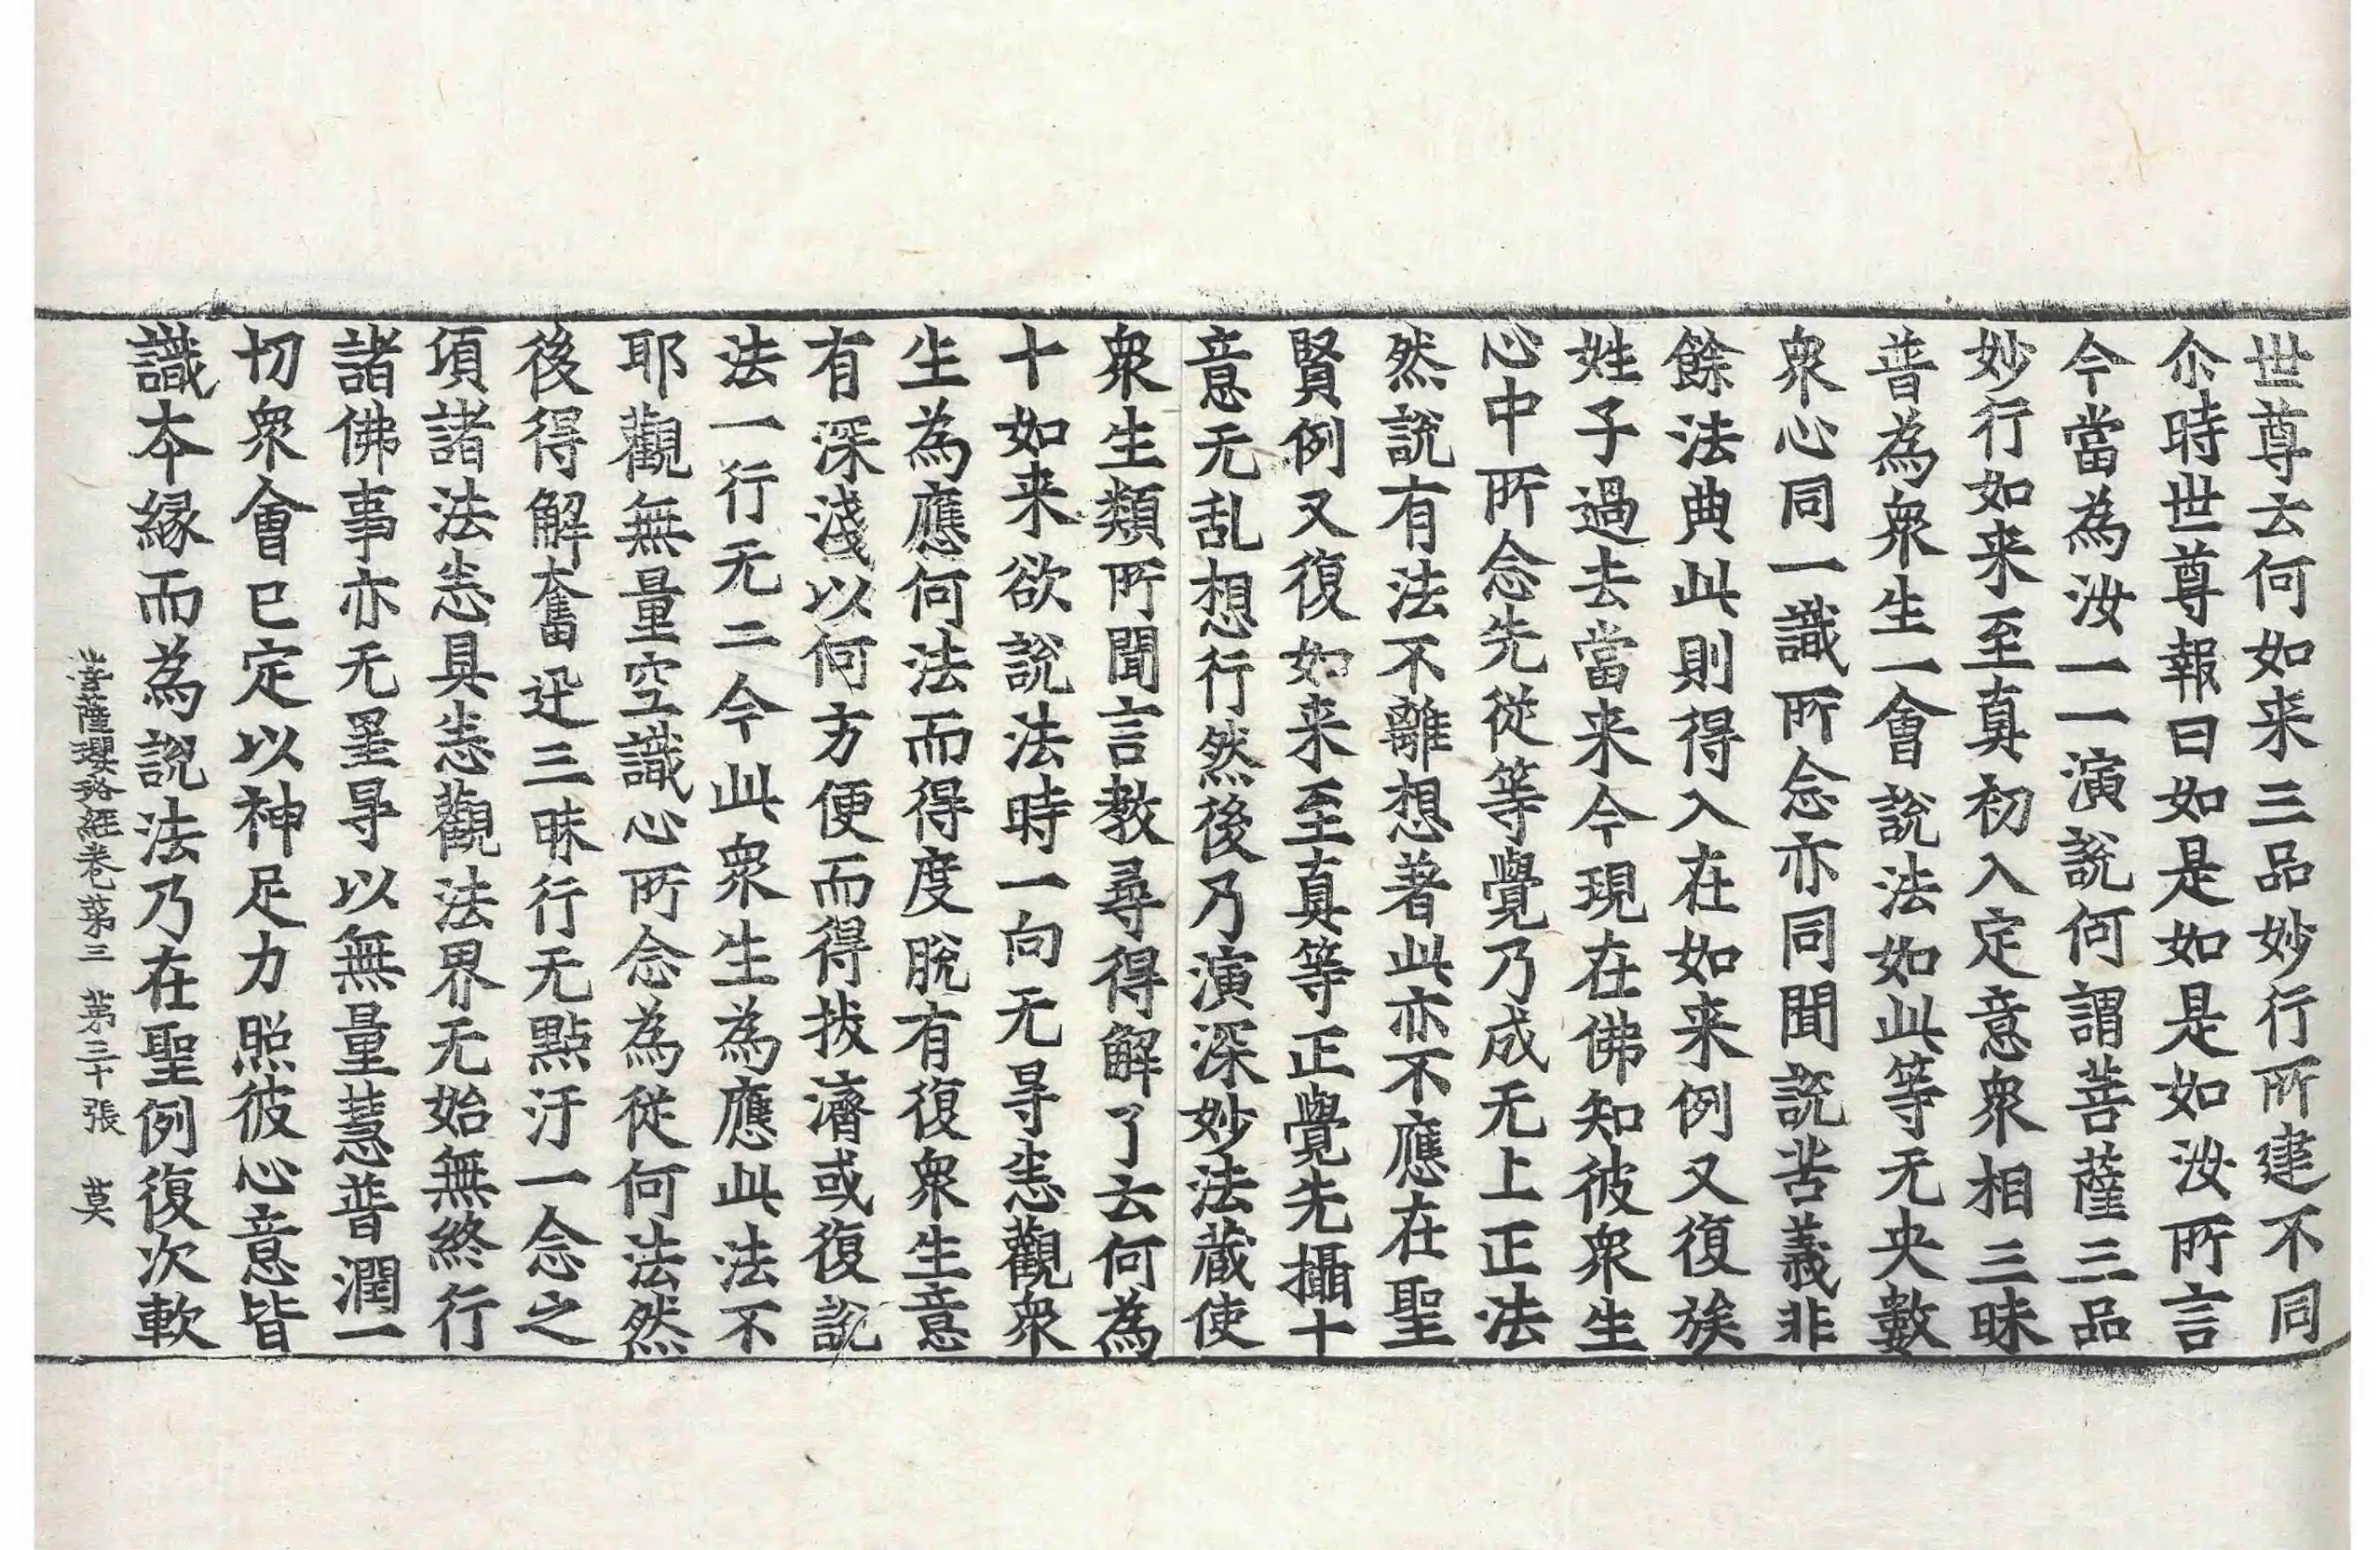 世尊云何如来三品妙行所建不同
尒時世尊報曰如是如是如汝所言
今當為汝一一演說何謂菩薩三品
妙行如来至真初入定意衆相三昧
普為衆生一會說法如此等无央數
衆心同一識所念亦同聞說苦義非
餘法典此則得入在如来例又復族
姓子過去當来今現在佛知彼衆生
心中所念先從等覺乃成无上正法
然說有法不離想著此亦不應在聖
賢例又復如来至真等正覺先攝十
意无乱想行然後乃演深妙法蔵使
衆生類所聞言教尋得解了云何為
十如来欲說法時一向无㝵悉觀衆
生為應何法而得度脫有復衆生意
有深淺以何方便而得拔濟或復說
法一行无二今此衆生為應此法不
耶觀無量空識心所念為從何法然
後得解奮迅三昧行无點汙一念之
頃諸法悉具悉觀法界无始無終行
諸佛事亦无罣㝵以無量慧普潤一
切衆會已定以神足力照彼心意皆
識本緣而為說法乃在聖例復次軟
菩薩瓔珞經卷第三　第三十張　莫